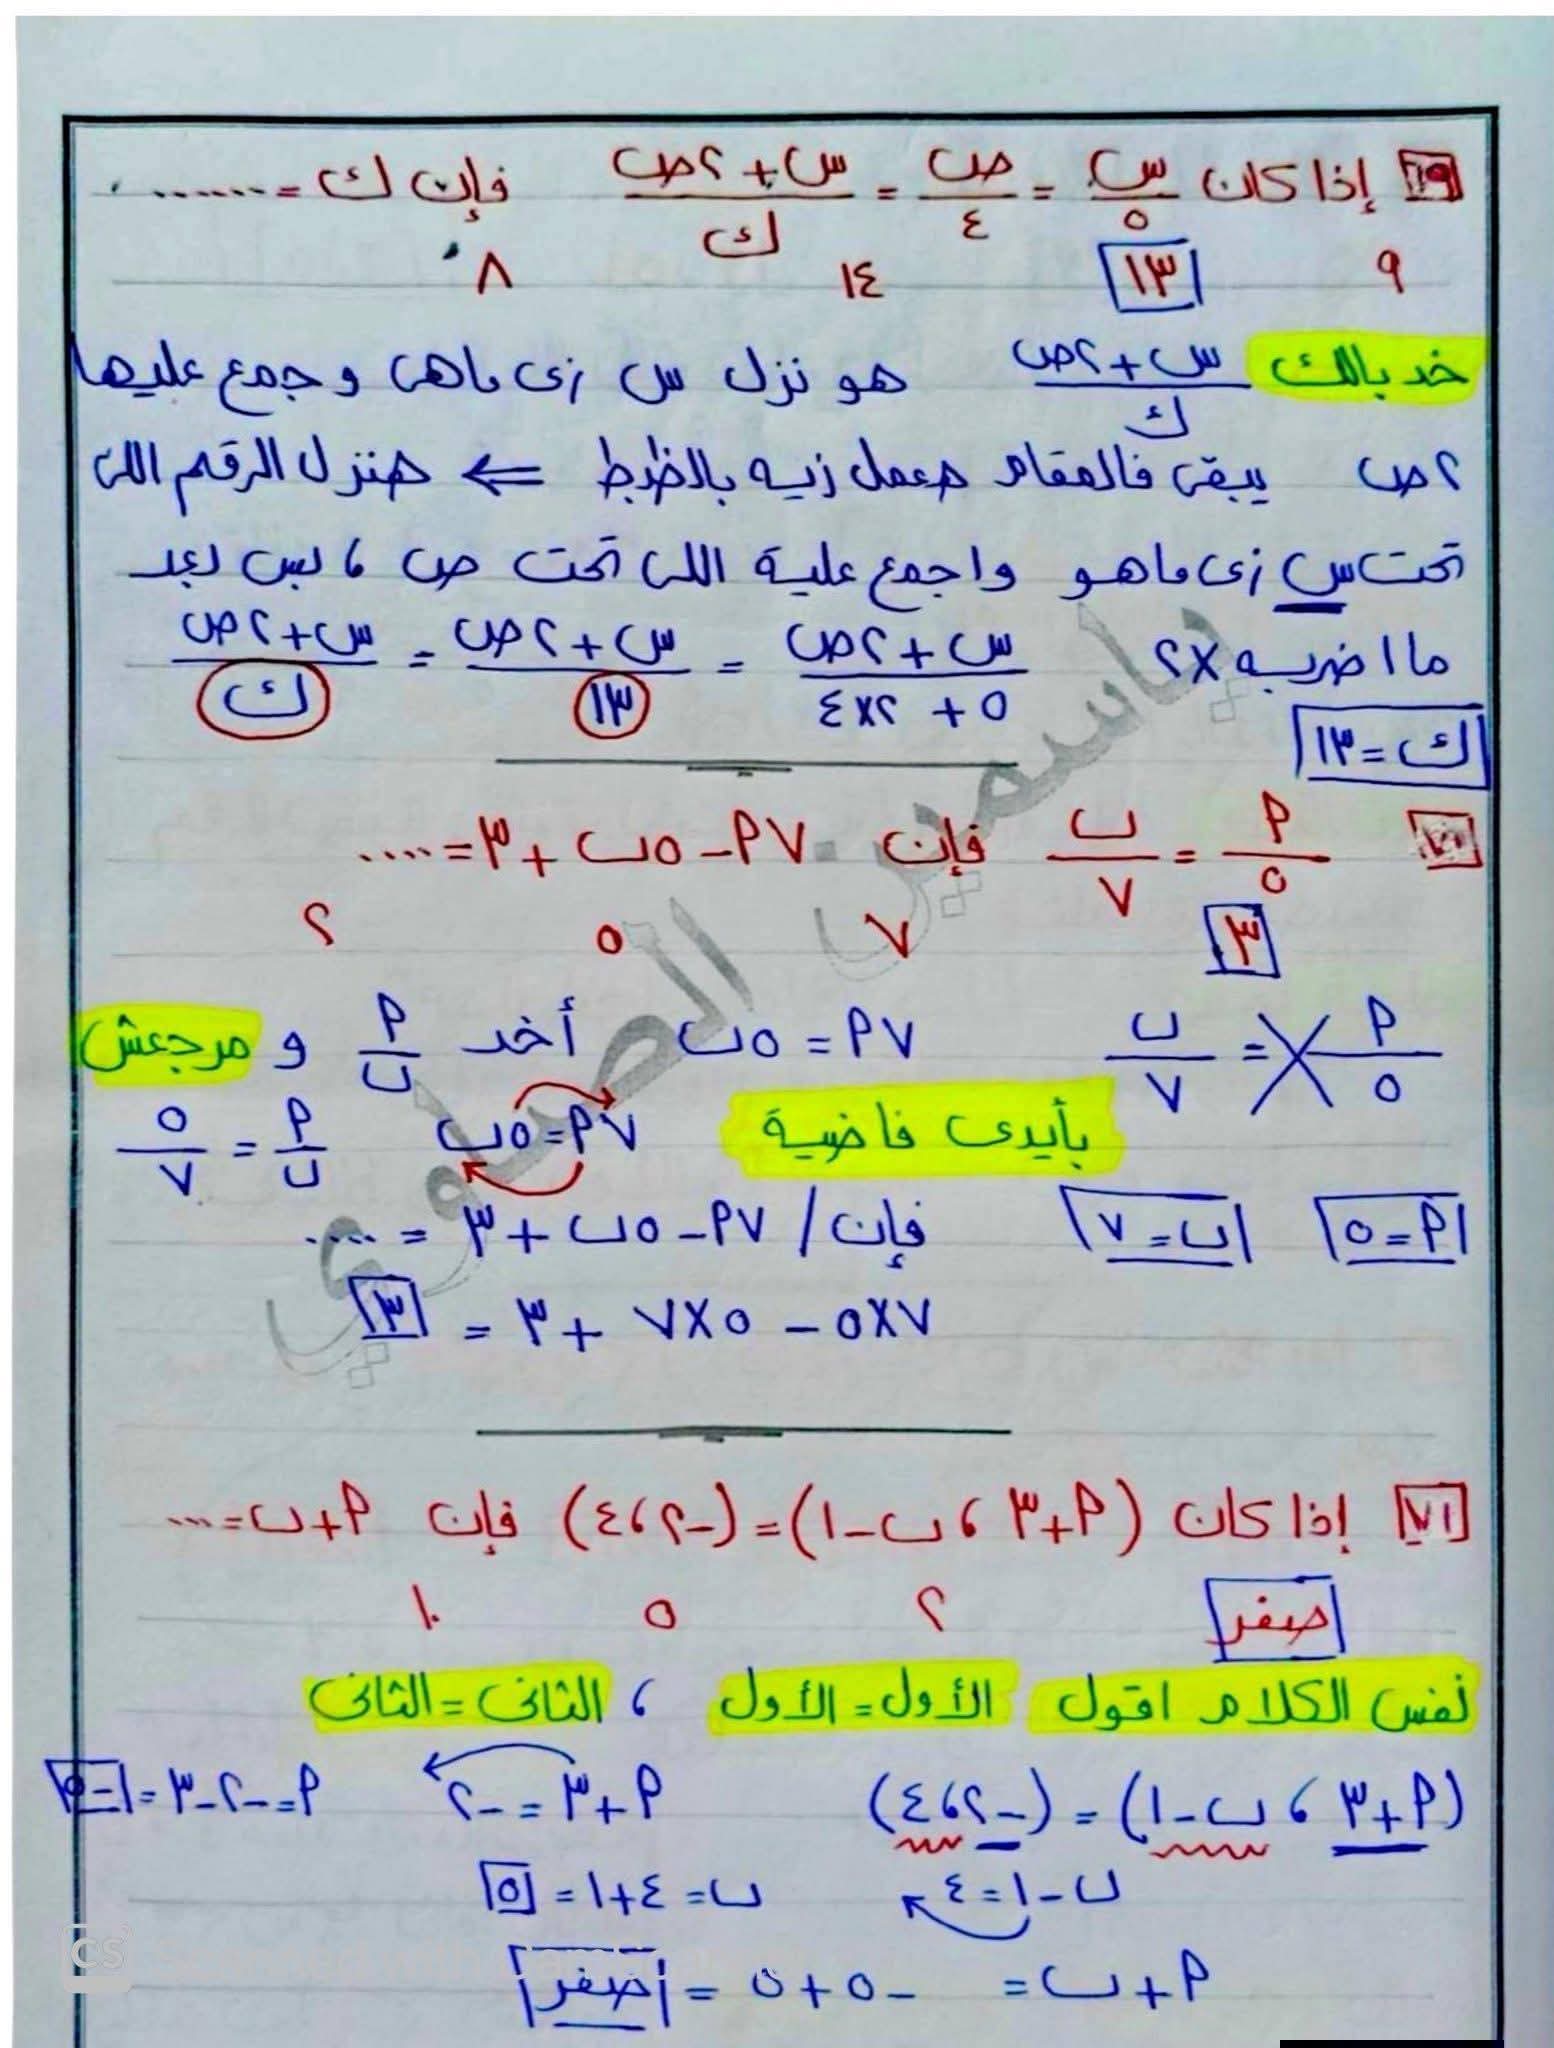 ٦٩ إذا كان س/٥ = ص/٤ = (س + ٢ص)/ك فإن ك = .......
٩ ١٣ ١٤ ٨
خد بالك (س + ٢ص)/ك هو نزل س زى ماهى و جمع عليها
٢ص يبقى فالمقام هعمل زيه بالظبط ⇐ هنزل الرقم اللى
تحت س زى ماهو واجمع علية اللى تحت ص ، بس بعد
ما اضربه ×٢ (س + ٢ص)/(٥ + ٢×٤) = (س + ٢ص)/١٣ = (س + ٢ص)/ك
ك = ١٣
٧٠ أ/٥ = ب/٧ فإن ٧أ - ٥ب + ٣ = ....
٣ ٧ ٥ ٢
أ/٥ = ب/٧ ٧أ = ٥ب أخد أ/ب و مرجعش
بأيدى فاضية ٧أ = ٥ب أ/ب = ٥/٧
أ = ٥ ب = ٧ فإن / ٧أ - ٥ب + ٣ = ....
٧×٥ - ٥×٧ + ٣ = ٣
٧١ إذا كان (أ+٣ ، ب-١) = (-٢ ، ٤) فإن أ+ب = ...
صفر ٢ ٥ ١٠
نفس الكلام اقول الأول = الأول ، الثانى = الثانى
(أ+٣ ، ب-١) = (-٢ ، ٤) أ+٣ = -٢ أ = -٢-٣ = -٥
ب-١ = ٤ ب = ٤+١ = ٥
أ+ب = -٥+٥ = صفر
ياسمين الصاوي
CS